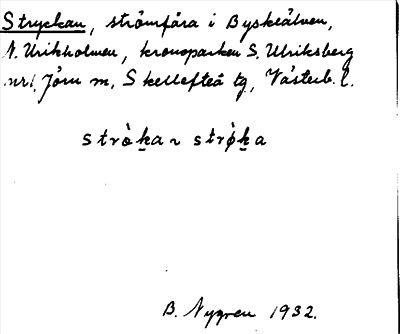 Stryckan, strömfåra i Byskeälven,
N. Urikholmen, kronoparken S. Ulriksberg
nr1, Jörn m, Skellefteå tg, Västerb. l.
strò̱ka ~ strø̀ḵa
B. Nygren 1932.